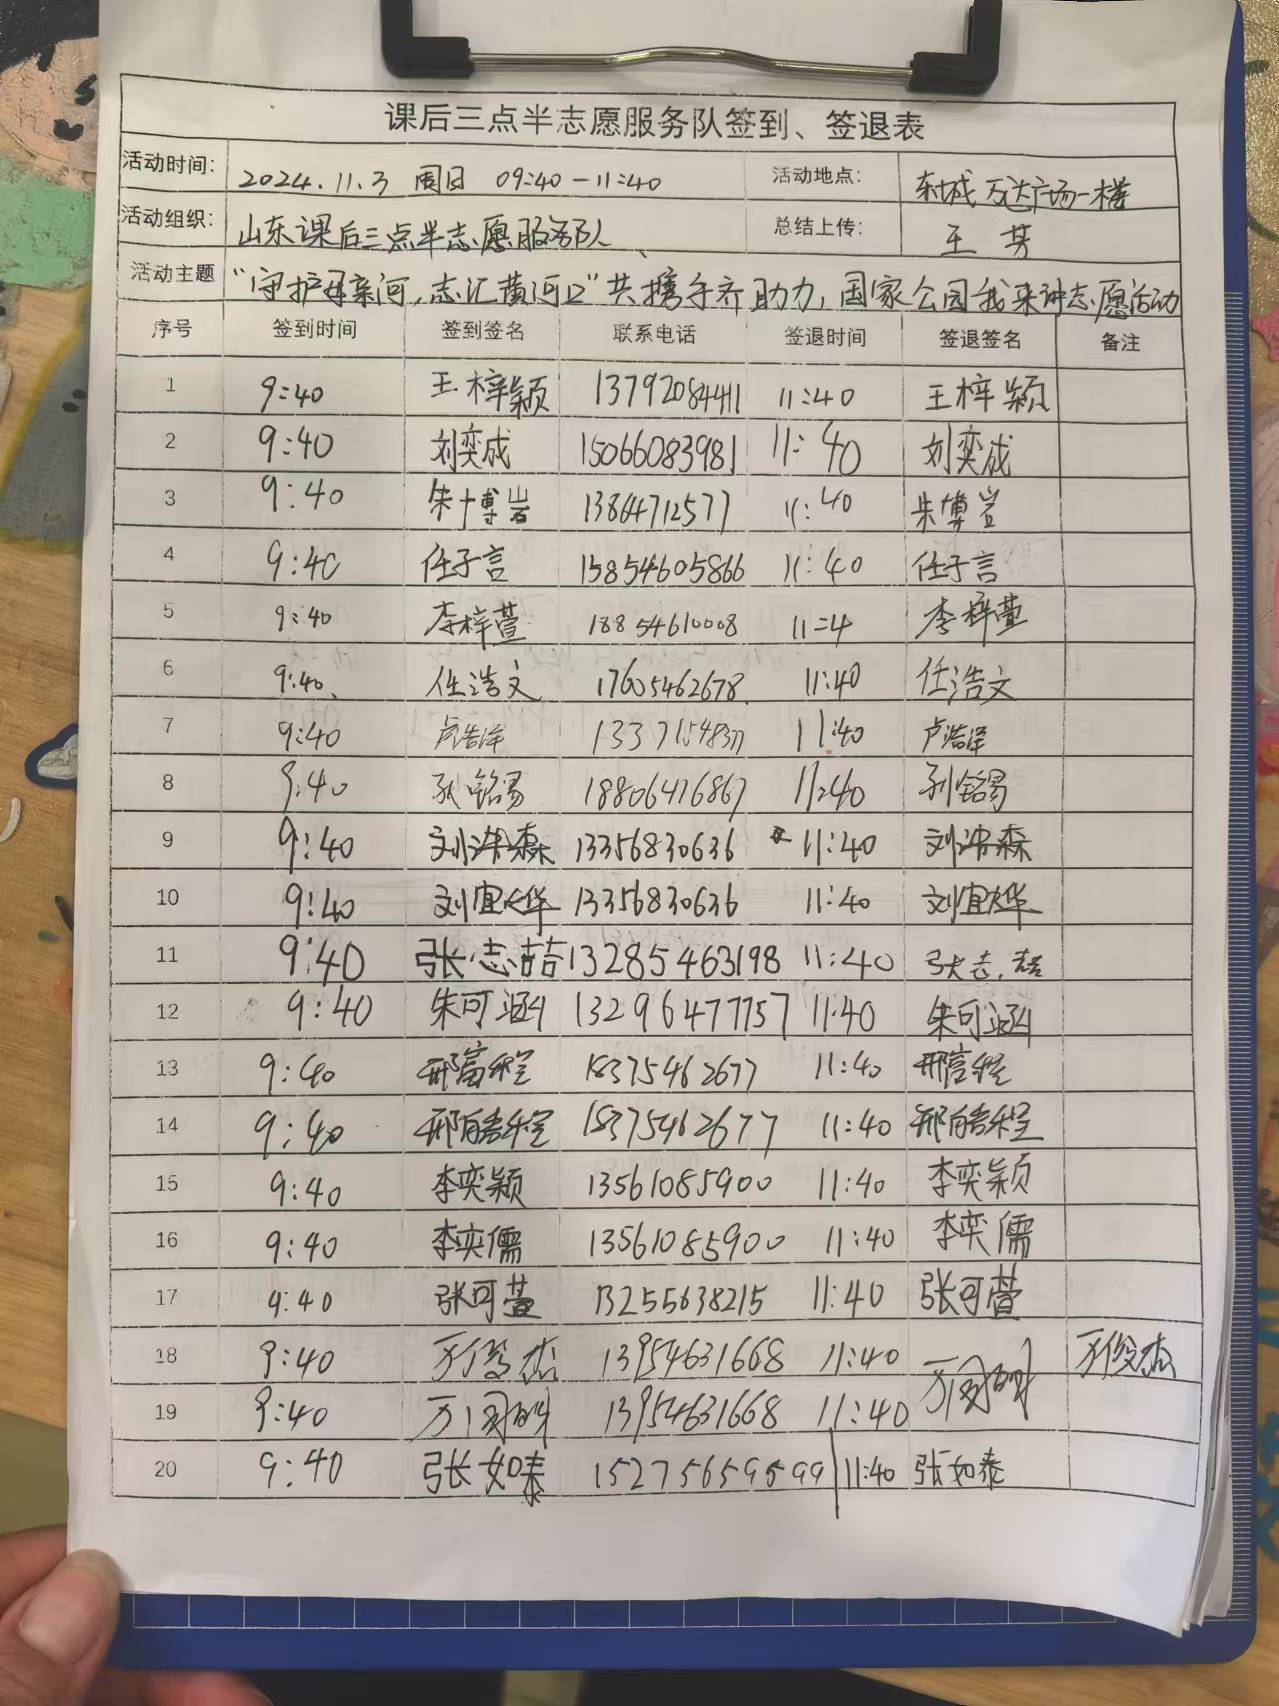 课后三点半志愿服务队签到、签退表
活动时间: 2024.11.3 周日 09:40-11:40 活动地点: 东城万达广场一楼
活动组织: 山东课后三点半志愿服务队 总结上传: 王芳
活动主题 “守护母亲河,志汇黄河口”共携手齐助力,国家公园我来讲志愿活动
序号 签到时间 签到签名 联系电话 签退时间 签退签名 备注
1 9:40 王梓颖 13792084411 11:40 王梓颖
2 9:40 刘奕成 15066083981 11:40 刘奕成
3 9:40 朱博岩 13864712577 11:40 朱博岩
4 9:40 任子言 15854605866 11:40 任子言
5 9:40 李梓萱 18854610008 11:4 李梓萱
6 9:40 任浩文 17605462678 11:40 任浩文
7 9:40 卢浩泽 13371548377 11:40 卢浩泽
8 9:40 孙铭易 18806476867 11:40 孙铭易
9 9:40 刘 森 13356830636 11:40 刘 森
10 9:40 刘宜烨 13356830636 11:40 刘宜烨
11 9:40 张志喆 13285463198 11:40 张志喆
12 9:40 朱可涵 13296477757 11:40 朱可涵
13 9:40 邢富程 18375462677 11:40 邢富程
14 9:40 邢 程 18375462677 11:40 邢 程
15 9:40 李奕颖 13561085900 11:40 李奕颖
16 9:40 李奕儒 13561085900 11:40 李奕儒
17 9:40 张可萱 13255638215 11:40 张可萱
18 9:40 万俊杰 13954631668 11:40 万俊杰
19 9:40 万 13954631668 11:40 万
20 9:40 张如泰 15275659599 11:40 张如泰